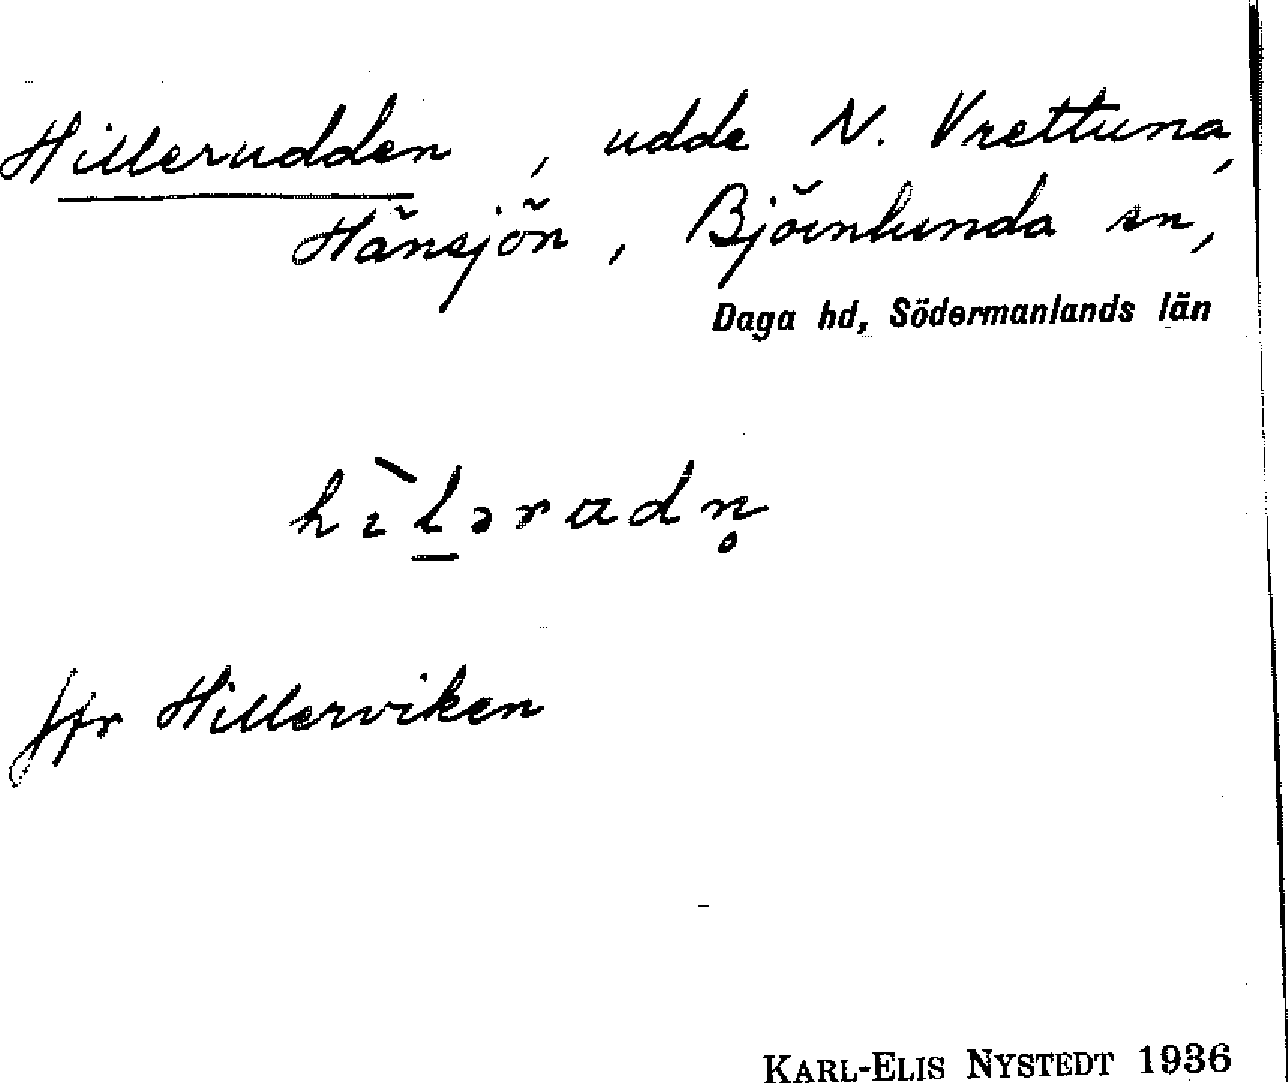 Hillerudden, udde N. Vrettuna,
Hånsjön, Björnlunda sn,
Daga hd, Södermanlands län
hìl̲əradn̥
Jfr Hillerviken
KARL-ELIS NYSTEDT 1936